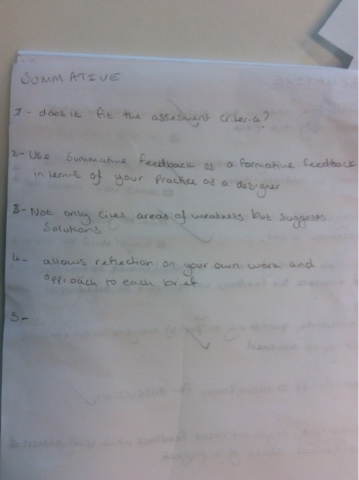 SUMMATIVE
1- does it fit the assesment criteria?
2- Use Summative feedback as a formative feedback
in terms of your practice as a designer
3- Not only gives areas of weakness but suggests
Solutions
4- allows reflection on your own work and
approach to each brief
5-